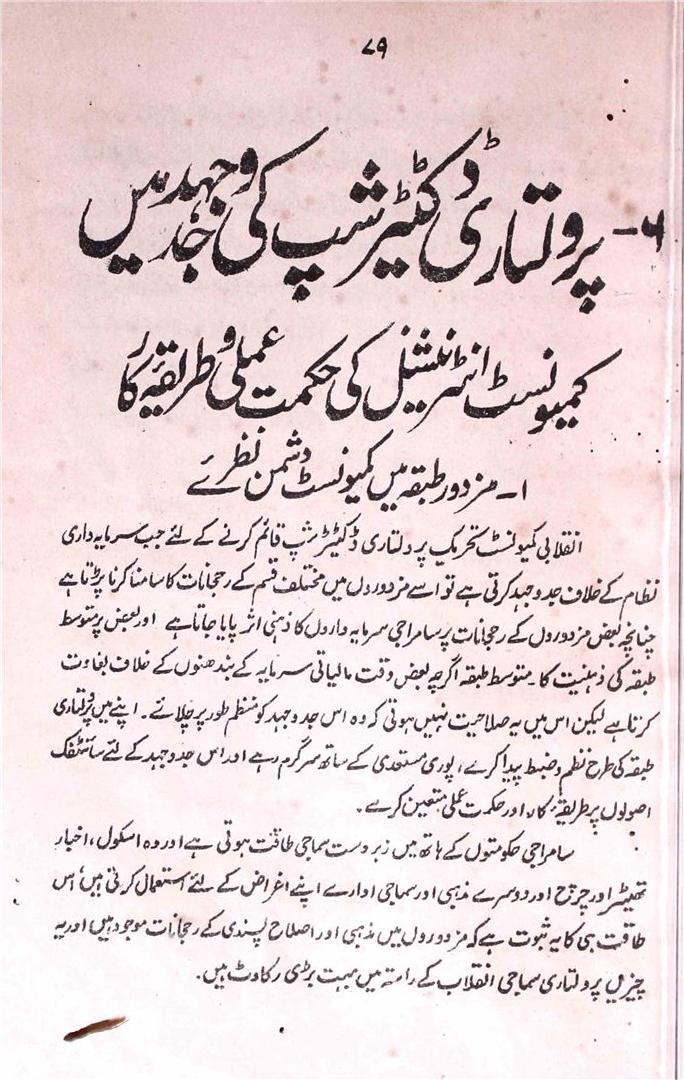 ۷۹
۶- پرولتاری ڈکٹیٹر شپ کی جدوجہد میں
کمیونسٹ انٹرنیشنل کی حکمت عملی و طریقۂ کار
۱- مزدور طبقہ میں کمیونسٹ دشمن نظریئے
انقلابی کمیونسٹ تحریک پرولتاری ڈکٹیٹر شپ قائم کرنے کے لئے جب سرمایہ داری
نظام کے خلاف جدوجہد کرتی ہے تو اسے مزدوروں میں مختلف قسم کے رحجانات کا سامنا کرنا پڑتا ہے
چنانچہ بعض مزدوروں کے رحجانات پر سامراجی سرمایہ داروں کا ذہنی اثر پایا جاتا ہے اور بعض پر متوسط
طبقہ کی ذہنیت کا۔ متوسط طبقہ اگرچہ بعض وقت مالیاتی سرمایہ کے بندھنوں کے خلاف بغاوت
کرتا ہے لیکن اس میں یہ صلاحیت نہیں ہوتی کہ وہ اس جدوجہد کو منظم طور پر چلائے۔ اپنے میں پرولتاری
طبقہ کی طرح نظم و ضبط پیدا کرے، پوری مستعدی کے ساتھ سرگرم رہے اور اس جدوجہد کے لئے سائنٹفک
اصولوں پر طریقۂ کار اور حکمت عملی متعین کرے۔
سامراجی حکومتوں کے ہاتھ میں زبردست سماجی طاقت ہوتی ہے اور وہ اسکول، اخبار
تھیٹر اور چرچ اور دوسرے مذہبی اور سماجی ادارے اپنے اغراض کے لئے استعمال کرتی ہیں، اس
طاقت ہی کا یہ ثبوت ہے کہ مزدوروں میں مذہبی اور اصلاح پسندی کے رحجانات موجود ہیں اور یہ
چیزیں پرولتاری سماجی انقلاب کے راستہ میں بہت بڑی رکاوٹ ہیں۔